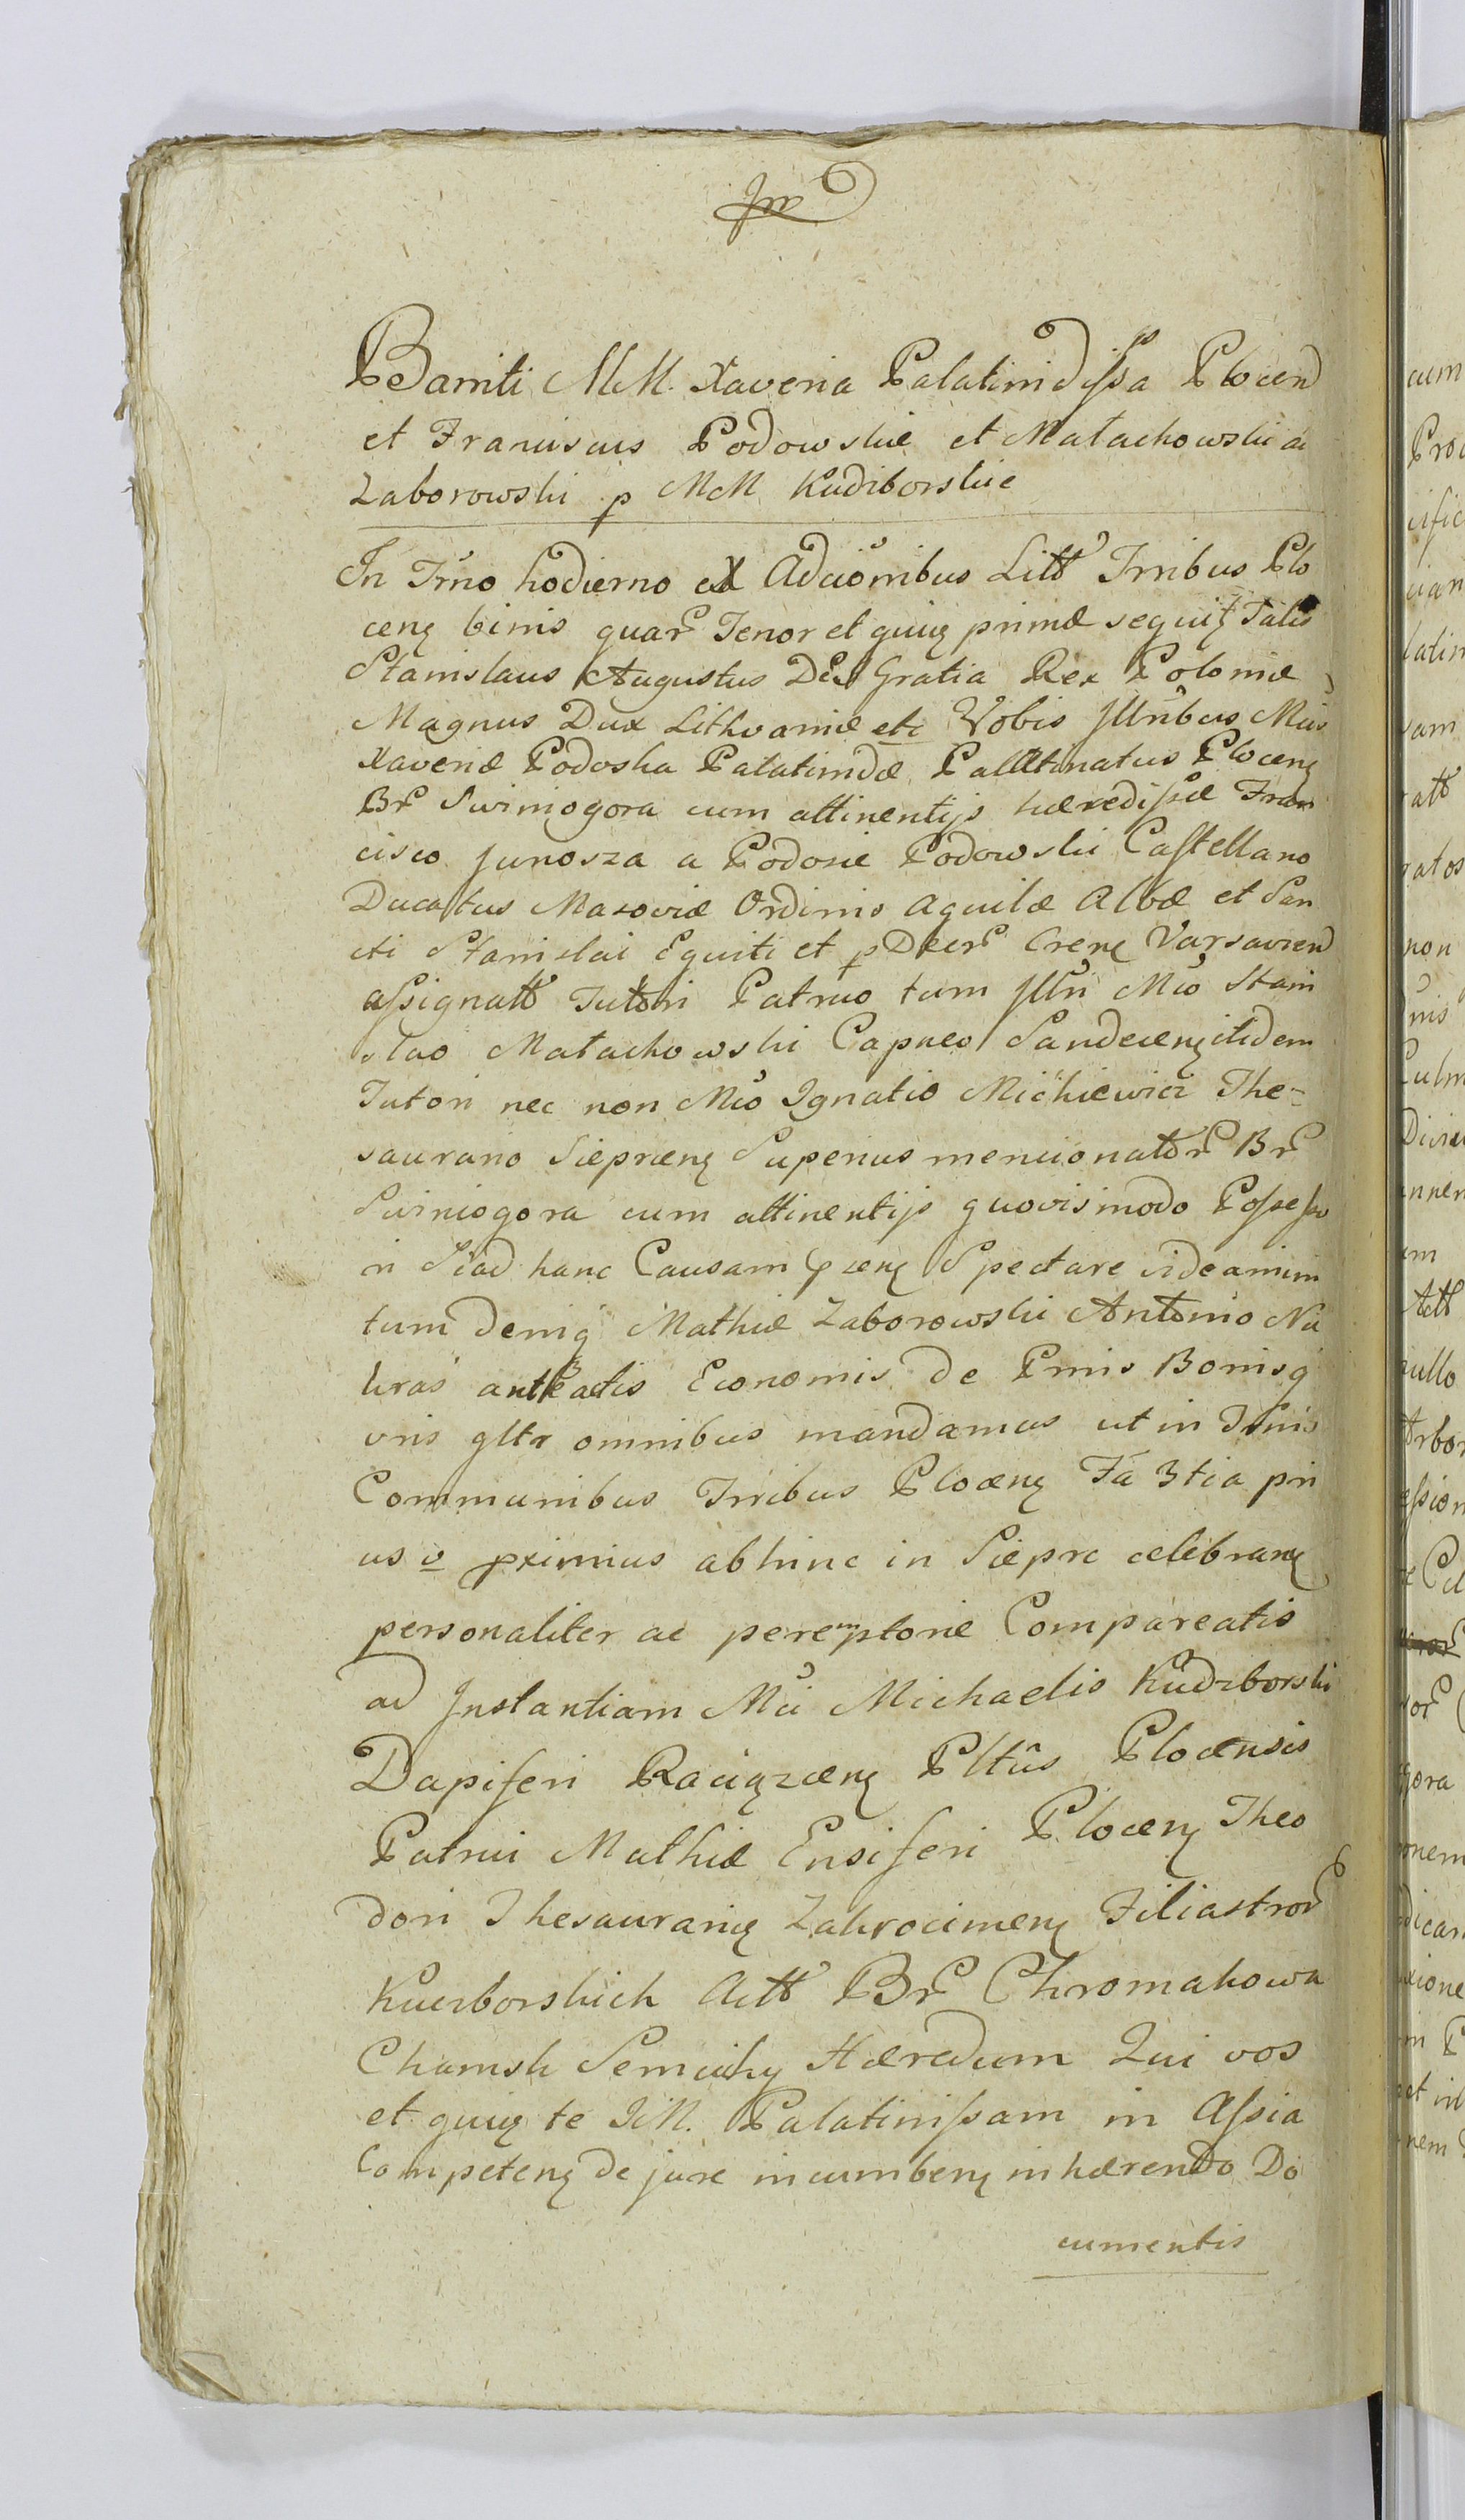 Banniti MM. Xaveria Palatinidissa Plocen
et Franciscus Podowskie et Małachowski ac
Zaborowski p MM Kudzborskie
In Trno hodierno ex Adcionibus Litt Trribus Plo
cen binis quar Tenor et quiq primæ sequit Talis
Stanislaus Augustus Dei Gratia Rex Poloniæ
Magnus Dux Lithvaniæ etc Vobis Illribus Mcis
Xaveriæ Podoska Palatinidæ Pallatinatus Plocen
Br Swiniogora cum attinentijs hæredissæ Fran
cisco Junosza a Podosie Podowski Castellano
Ducatus Masoviæ Ordinis Aquilæ Albæ et San
cti Stanislai Equiti et p Decr Cren Varsavien
assignatt Tutori Patruo tum Illri Mco Stani
slao Małachowski Capneo Sandecen itidem
Tutori nec non Mco Ignatio Mickiewicz The-
saurario Sieprcen Superius mencionator Br
Swiniogora cum attinentijs quovismodo Possesso
ri Si ad hanc Causam pzen Spectare videamini
tum deniq Mathiæ Zaborowski Antonio Na
kras anteactis Economis de Pnnis Bonisq
vris gltr omnibus mandamus ut in Trnis
Communibus Trribus Plocen Fa 3tia pri
us v pximius abhinc in Sieprc celebran
personaliter ac peremptorie Compareatis
ad Instantiam Mci Michaelis Kudzborski
Dapiferi Raciązcen Pltûs Plocensis
Patrui Mathiæ Ensiferi Plocen Theo
dori Thesaurarij Zakrocimen Filiastror
Kuczborskich Actt Br Chromakowa
Chamsk Hæredum Qui vos
et quiq te IM. Palatinissam in Assia
Competen de jure incumben inhærendo Do
cumentis